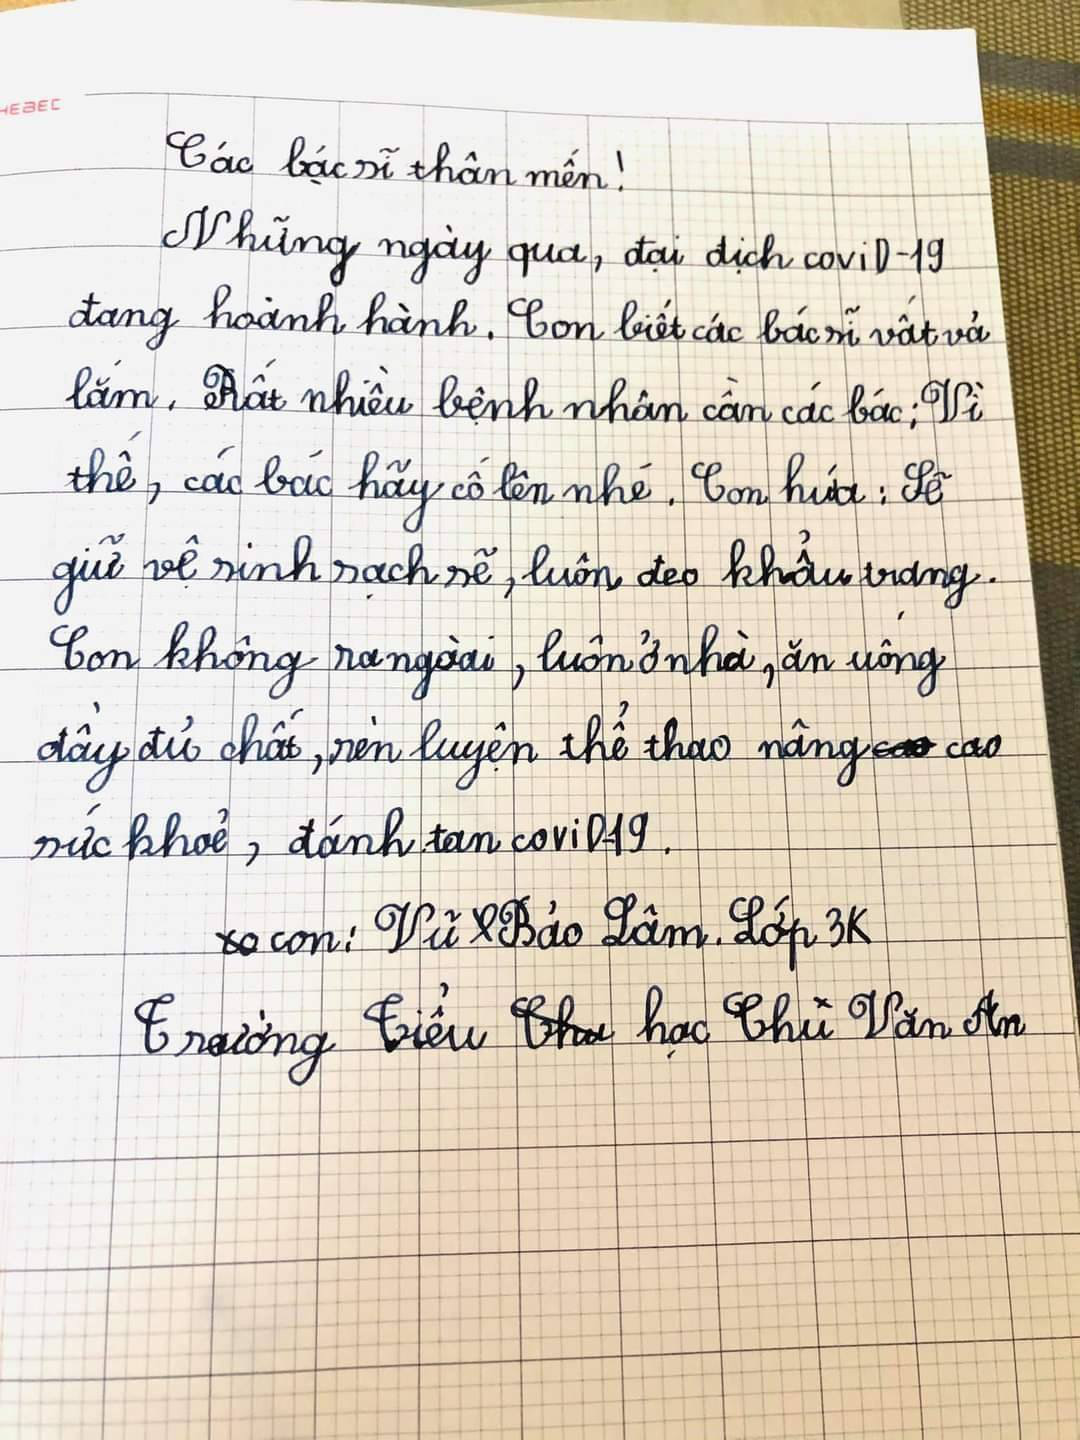 HEBEC
Các bác sĩ thân mến!
Những ngày qua, đại dịch coviD-19
đang hoành hành. Con biết các bác sĩ vất vả
lắm. Rất nhiều bệnh nhân cần các bác; Vì
thế, các bác hãy cố lên nhé. Con hứa: Sẽ
giữ vệ sinh sạch sẽ, luôn đeo khẩu trang.
Con không ra ngoài, luôn ở nhà, ăn uống
đầy đủ chất, rèn luyện thể thao nâng cao
sức khoẻ, đánh tan coviD-19.
con: Vũ Bảo Lâm. Lớp 3K
Trường Tiểu học Chu Văn An